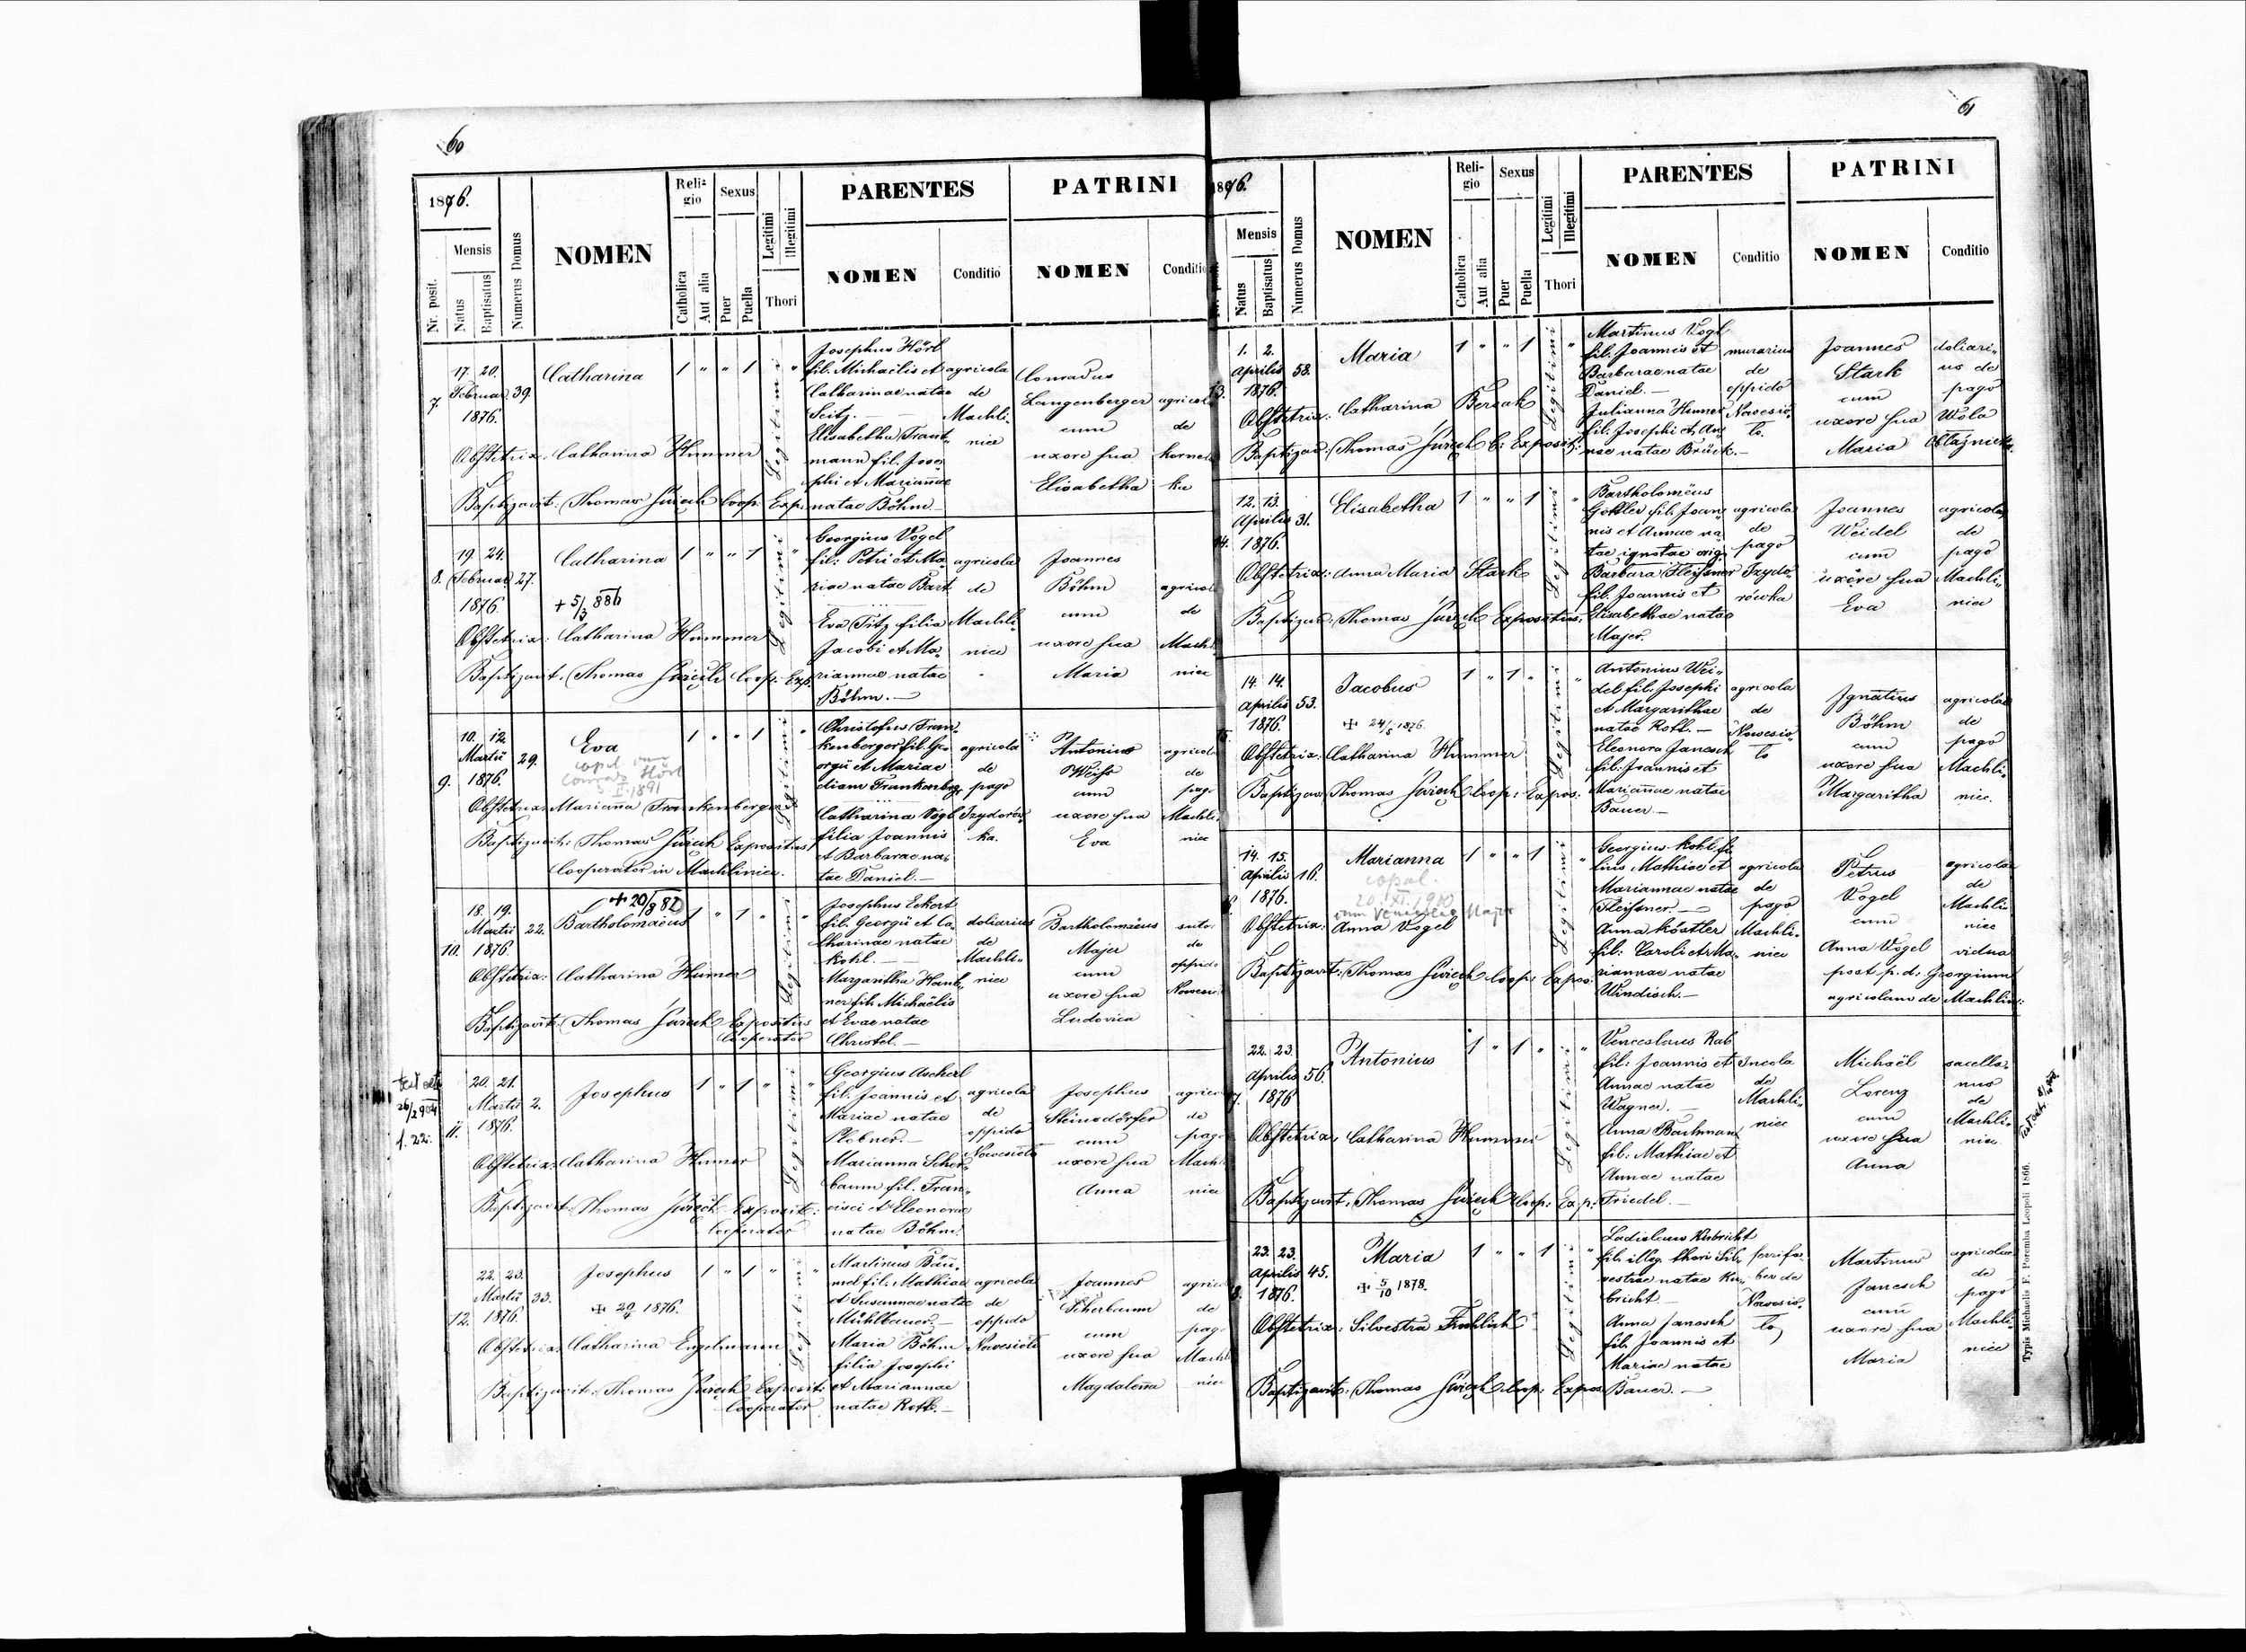 60
1876.
Nr. posit.
Mensis
Natus
Baptisatus
Numerus Domus
NOMEN
Reli-
gio
Catholica
Aut alia
Sexus
Puer
Puella
Legitimi
Illegitimi
Thori
PARENTES
NOMEN
Conditio
PATRINI
NOMEN
Conditio
7.
17. 20.
Februar
1876.
39.
Catharina
1 " " 1
Legitimi
"
Josephus Hörl
fil. Michaelis et
Catharinae natae
Seitz. —
Elisabetha Traut-
mann fil. Jose-
phi et Mariannae
natae Böhm —
agricola
de
Machli-
nice
Conradus
Langenberger
cum
uxore sua
Elisabetha
agricola
de
ka
Obstetrix: Catharina Hummer
Baptizavit: Thomas Coop: Exp.
8.
19. 24.
Februar
1876.
27.
Catharina
+ 5/3 886
1 " " 1
Legitimi
"
Georgius Vogel
fil: Petri et Ma-
riae natae Bart
Eva Titz filia
Jacobi et Ma-
riannae natae
Böhm. —
agricola
de
Machli-
nice
Joannes
Böhm
cum
uxore sua
Maria
agricol
de
Machl
nice
Obstetrix: Catharina Hummer
Baptizavit: Thomas Coop: Exp.
9.
10. 12.
Martii
1876.
29.
Eva
copul. cum
Conrad Hörl
II. 1891
1 " " 1
Legitimi
"
Christofus Fran-
kenberger fil. Ge-
orgii et Mariae
etiam Frankenberg.
Catharina Vogl
filia Joannis
et Barbarae na-
tae Daniel. —
agricola
de
pago
Izydorów-
ka.
Antonius
Weiss
cum
uxore sua
Eva
agricola
de
pago
Machli-
nice
Obstetrix: Marianna Frankenberger
Baptizavit: Thomas Expositus
Cooperator in Machlinice.
10.
18. 19.
Martii
1876.
22.
+ 20/8 82
Bartholomaeus
1 " 1 "
Legitimi
"
Josephus Eckert
fil. Georgii et Ca-
tharinae natae
Kohl. —
Margaritha Haub-
ner fil. Michaëlis
et Evae natae
Christel. —
doliarius
de
Machli-
nice
Bartholomäus
Majer
cum
uxore sua
Ludovica
sutor
de
oppido
Nowesi
Obstetrix: Catharina Humer
Baptizavit: Thomas Expositus
Cooperator
26/2 904
f. 22.
11.
20. 21.
Martii
1876.
2.
Josephus
1 " 1 "
Legitimi
"
Georgius Ascherl
fil. Joannis et
Mariae natae
Plobner. —
Marianna Scher-
baum fil. Fran-
cisci et Eleonorae
natae Böhm.
agricola
de
oppido
Nowesioło
Josephus
Steinsdörfer
cum
uxore sua
Anna
agrico
de
pago
Machl
nice
Obstetrix: Catharina Humer
Baptizavit: Thomas Exposit:
Cooperator
12.
22. 23.
Martii
1876.
33.
Josephus
+ 29/4 1876.
1 " 1 "
Legitimi
"
Martinus Bäu-
mel fil. Mathiae
et Susannae natae
Mühlbauer —
Maria Böhm
filia Josephi
et Mariannae
natae Roth. —
agricola
de
oppido
Nowesioło
Joannes
Scherbaum
cum
uxore sua
Magdalena
agrico
de
pago
Machl
nice
Obstetrix: Catharina Engelmann
Baptizavit: Thomas Exposit:
Cooperator
61
1876.
Mensis
Natus
Baptisatus
Numerus Domus
NOMEN
Reli-
gio
Catholica
Aut alia
Sexus
Puer
Puella
Legitimi
Illegitimi
Thori
PARENTES
NOMEN
Conditio
PATRINI
NOMEN
Conditio
13.
1. 2.
Aprilis
1876.
58.
Maria
1 " " 1
Legitimi
"
Martinus Vogl
fil. Joannis et
Barbarae natae
Daniel. —
Julianna Humer
fil. Josephi et An-
nae natae Brück. —
murarius
de
oppido
Nowesio-
ło.
Joannes
Stark
cum
uxore sua
Maria
doliari-
us de
pago
Wola
Obłaźnicka.
Obstetrix: Catharina Bersak
Baptizavit: Thomas C: Exposit:
14.
12. 13.
Aprilis
1876.
31.
Elisabetha
1 " " 1
Legitimi
"
Bartholomëus
Gottler fil. Joan-
nis et Annae na-
tae ignotae orig.
Barbara Fleissner
fil. Joannis et
Elisabethae natae
Majer.
agricola
de
pago
Izydo-
rówka
Joannes
Weidel
cum
uxore sua
Eva
agricola
de
pago
Machli-
nice
Obstetrix: Anna Maria Stark
Baptizavit: Thomas Expositus:
15.
14. 14.
Aprilis
1876.
53.
Jacobus
+ 24/5 1876.
1 " 1 "
Legitimi
"
Antonius Wei-
del fil. Josephi
et Margarithae
natae Roth. —
Eleonora Janesch
fil. Joannis et
Mariannae natae
Bauer —
agricola
de
Nowesio-
ło
Ignatius
Böhm
cum
uxore sua
Margaritha
agricola
de
pago
Machli-
nice.
Obstetrix: Catharina Hummer
Baptizav: Thomas Coop: Expos:
14. 15.
Aprilis
1876.
16.
Marianna
copul.
20. XI. 1910
cum Majer
1 " " 1
Legitimi
"
Georgius Kohl fi-
lius Mathiae et
Mariannae natae
Fleissner. —
Anna Köstler
fil: Caroli et Ma-
riannae natae
Windisch. —
agricola
de
pago
Machli-
nice
Petrus
Vogel
cum
Anna Vogel vidua
post. p. d. Georgium
agricolam de Machlin:
agricola
de
Machli
nice
Obstetrix: Anna Vogel
Baptizavit: Thomas Coop: Expos:
22. 23.
Aprilis
1876
56.
Antonius
1 " 1 "
Legitimi
"
Venceslaus Rab
fil: Joannis et
Annae natae
Wagner. —
Anna Bachman
fil: Mathiae et
Annae natae
Friedel. —
Incola
de
Machli-
nice
Michaël
Lorenz
cum
uxore sua
Anna
sacella-
nus
de
Machli-
nice.
Obstetrix: Catharina Hummer
Baptizavit: Thomas Coop: Exp:
23. 23.
Aprilis
1876.
45.
Maria
+ 5/10 1878.
1 " " 1
Legitimi
"
Ladislaus
fil. illeg. thori Sil-
vestrae natae
bricht —
Anna Janesch
fil. Joannis et
Mariae natae
Bauer. —
ferrifa-
ber de
Nowesio-
ło
Martinus
Janesch
cum
uxore sua
Maria
agricola
de
pago
Machli-
nice
Obstetrix: Silvestra Frohlich
Baptizavit: Thomas Coop: Expos:
Typis Michaelis F. Poremba Leopoli 1866.